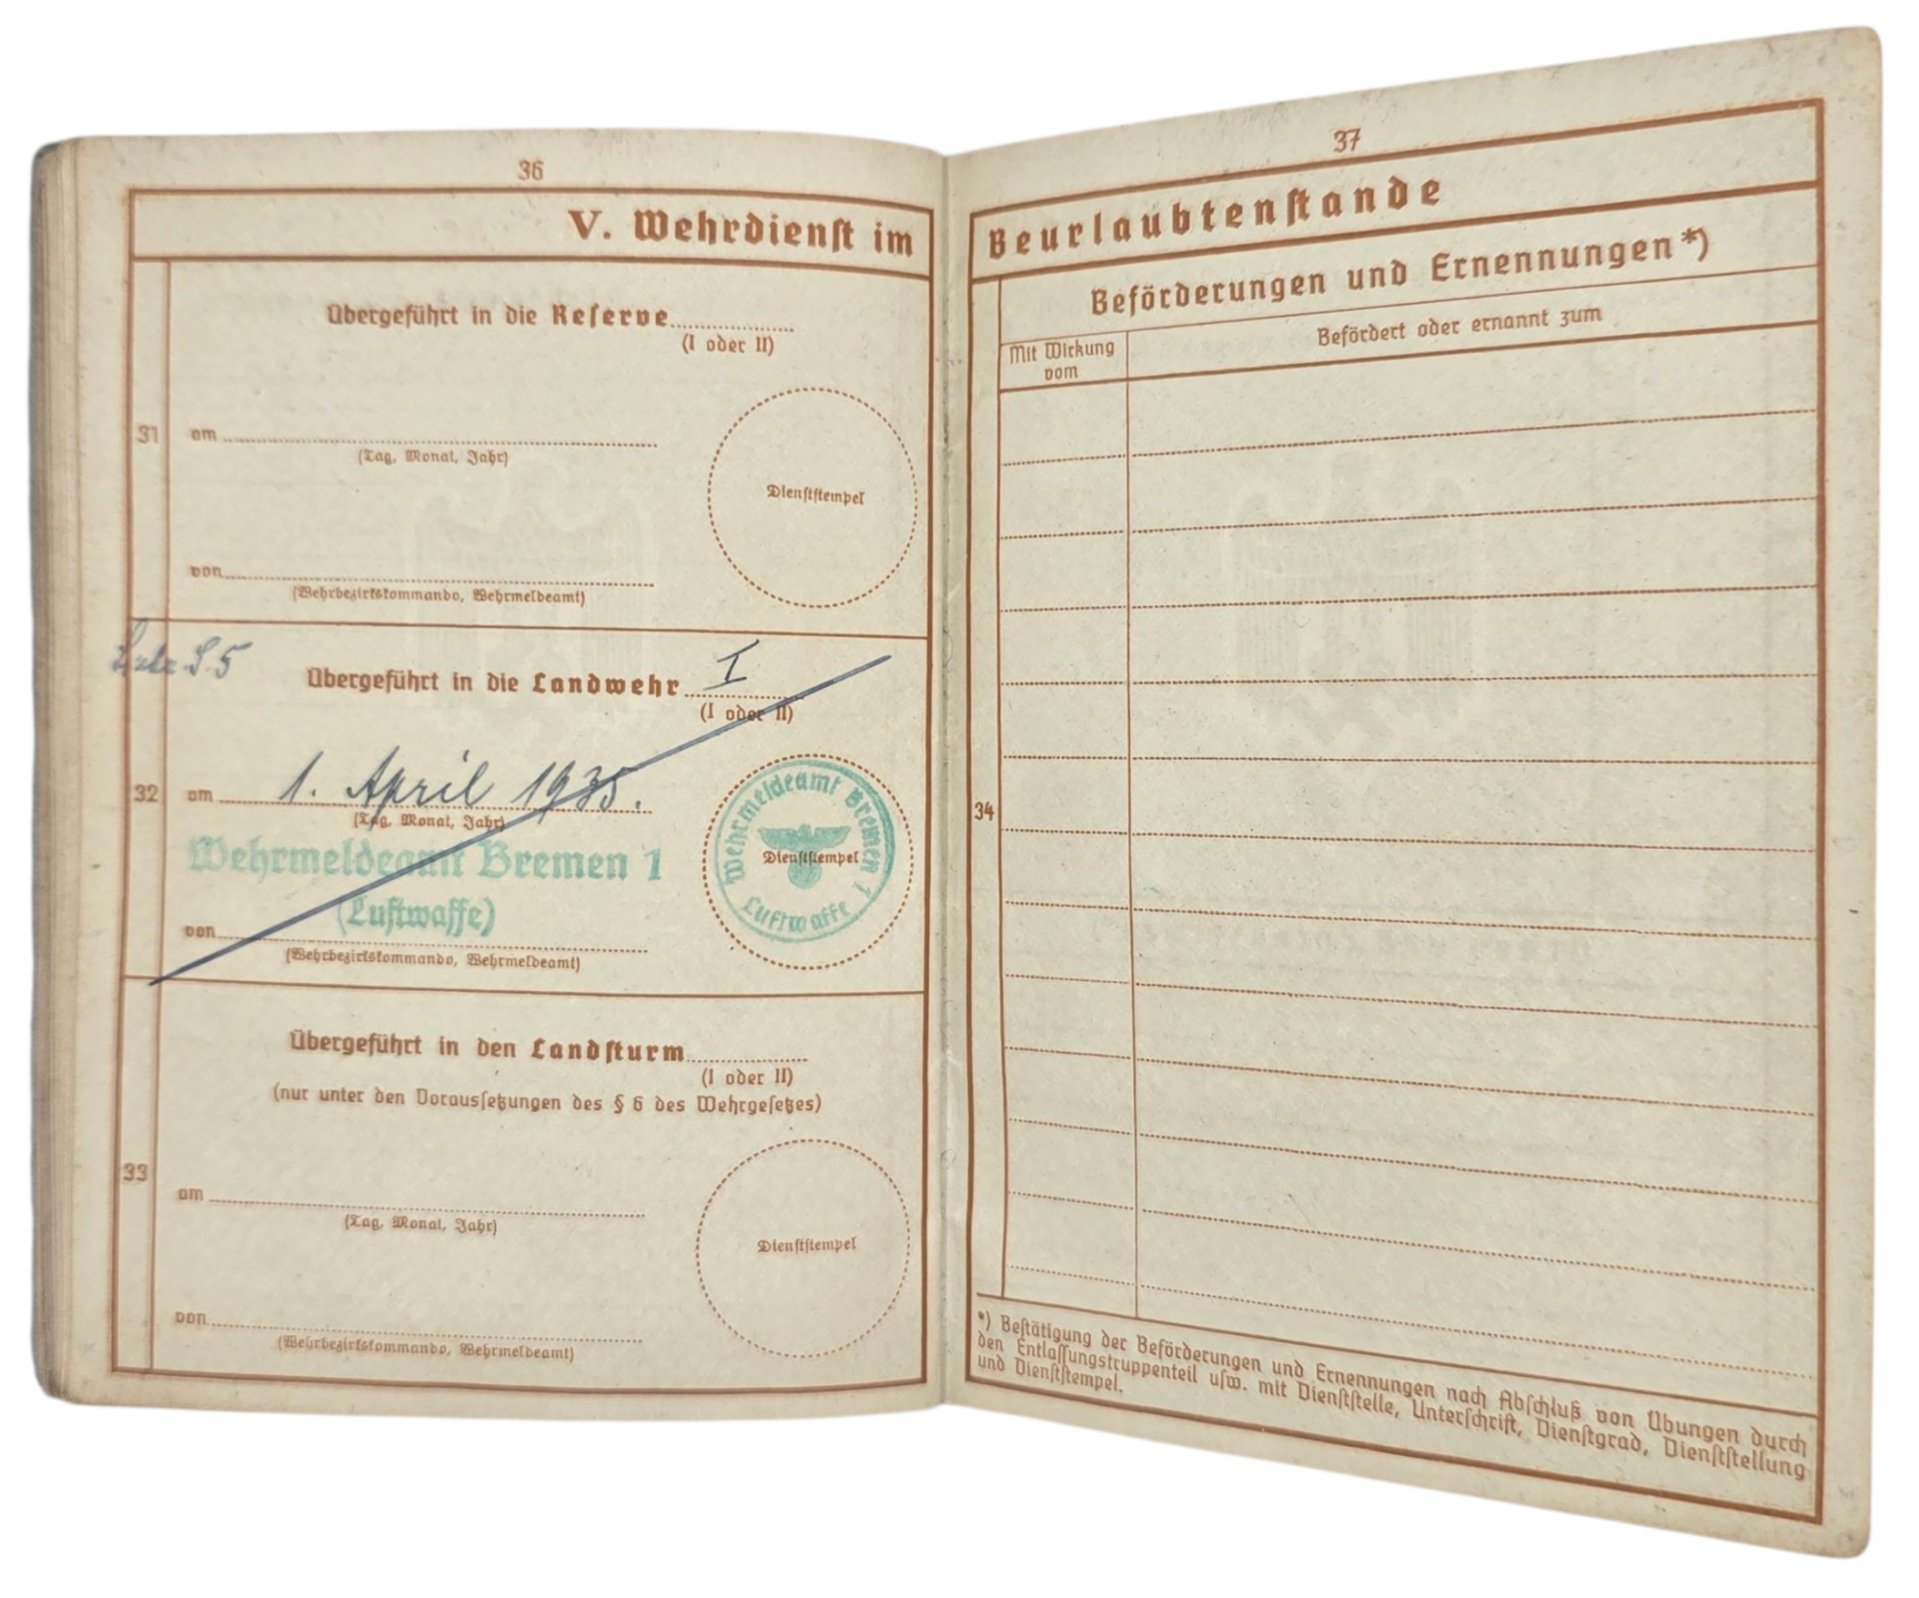 36
V. Wehrdienst im
Übergeführt in die Reserve
(I oder II)
31
am
(Tag, Monat, Jahr)
Dienststempel
von
(Wehrbezirkskommando, Wehrmeldeamt)
S. 5
Übergeführt in die Landwehr I
(I oder II)
32
am 1. April 1935.
(Tag, Monat, Jahr)
Wehrmeldeamt Bremen 1
(Luftwaffe)
von
(Wehrbezirkskommando, Wehrmeldeamt)
Wehrmeldeamt Bremen 1
Dienststempel
Luftwaffe
Übergeführt in den Landsturm
(I oder II)
(nur unter den Voraussetzungen des § 6 des Wehrgesetzes)
33
am
(Tag, Monat, Jahr)
Dienststempel
von
(Wehrbezirkskommando, Wehrmeldeamt)
37
Beurlaubtenstande
Beförderungen und Ernennungen*)
Mit Wirkung
vom
Befördert oder ernannt zum
34
*) Bestätigung der Beförderungen und Ernennungen nach Abschluß von Übungen durch
den Entlassungstruppenteil usw. mit Dienststelle, Unterschrift, Dienstgrad, Dienststellung
und Dienststempel.